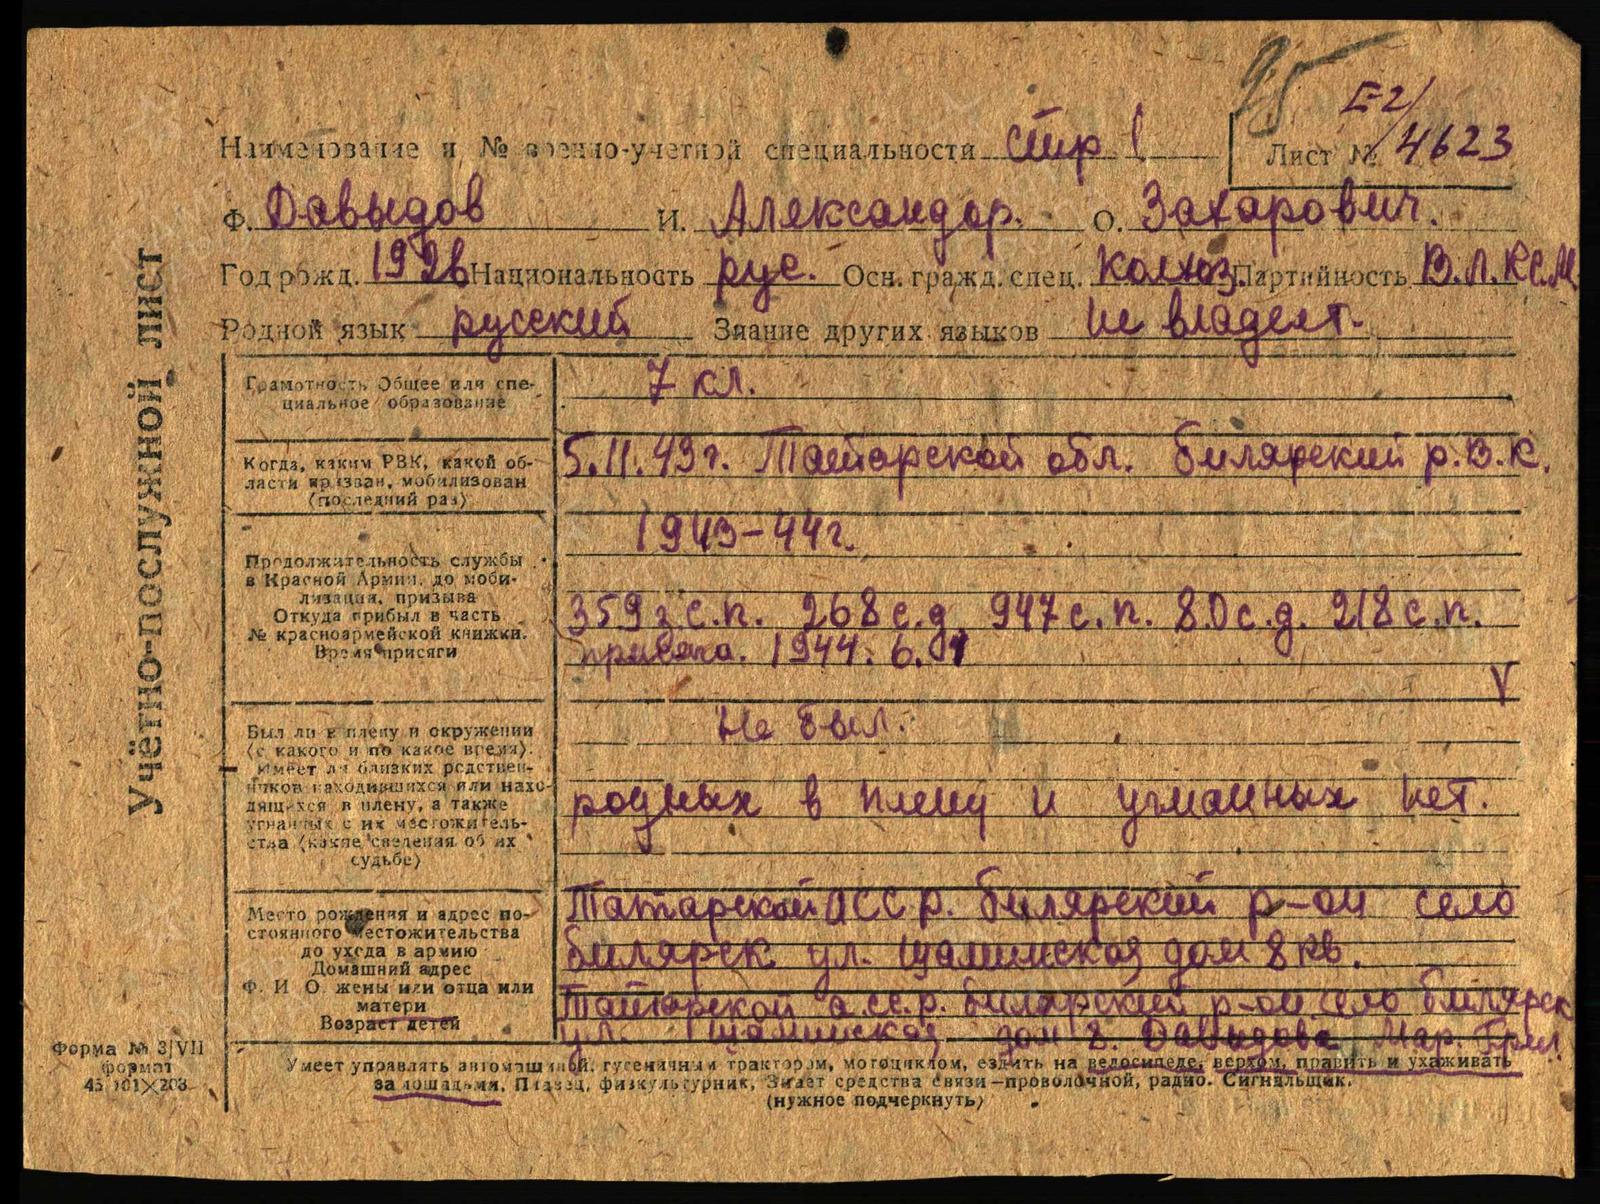 95
I-2/
Наименование и № военно-учетной специальности стр 1
Лист № 4623
Ф. Давыдов И. Александр. О. Захарович.
Год рожд. 1926 Национальность рус. Осн. гражд. спец. колхоз. Партийность В.Л.К.С.М.
Родной язык русский Знание других языков не владеет.
Учётно-послужной лист
Грамотность Общее или спе-
циальное образование
7 кл.
Когда, каким РВК, какой об-
ласти призван, мобилизован
(последний раз)
5.11.43г. Татарской обл. билярский р.в.к.
Продолжительность службы
в Красной Армии, до моби-
лизации, призыва
Откуда прибыл в часть
№ красноармейской книжки.
Время присяги
1943-44г.
359 з.с.п. 268 с.д. 947 с.п. 80 с.д. 218 с.п.
1944. 6.
V
Был ли в плену и окружении
(с какого и по какое время).
Имеет ли близких родствен-
ников находившихся или нахо-
дящихся в плену, а также
угнанных с их местожитель-
ства (какие сведения об их
судьбе)
Не был.
родных в плену и угнанных нет.
Место рождения и адрес по-
стоянного местожительства
до ухода в армию
Домашний адрес
Ф. И О. жены или отца или
матери
Возраст детей
Татарской АССР. билярский р-он село
билярск ул. дом 8 кв.
Татарской а.сс.р. билярский р-он село билярск
ул. дом 8. Давыдова Мар.
Форма № 3/VII
формат
Умеет управлять автомашиной, гусеничным трактором, мотоциклом, ездить на велосипеде, верхом, править и ухаживать
за лошадьми. Пловец, физкультурник, Знает средства связи—проволочной, радио. Сигнальщик.
(нужное подчеркнуть)